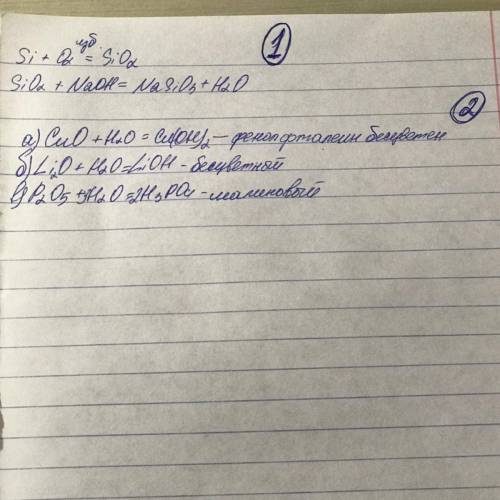 1
изб.
Si + O2 = SiO2
SiO2 + NaOH = NaSiO3 + H2O
2
а) CuO + H2O = Cu(OH)2 — фенолфталеин бесцветен
б) Li2O + H2O = LiOH - бесцветный
в) P2O5 + 3H2O = 2H3PO4 - малиновый